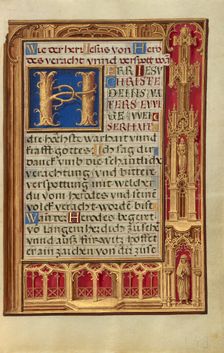 Wie der her Jesus von Herod
des veracht vnnd verspott wa
HERR JESV
CHRISTE
DEINS VA
TERS EWI
GE WEIS
die höchst warhait vnnd
krafft gottes Ich sag dir
danck vmb die schantliche
verachtung vnd bittere
verspottung mit welcher
du vom herodes vnd seinem
volck veracht worden bist
Wann Herodes begert
vo langem her dich zusehen
vnnd aus fürwitz hoffet
er ain zaichen von dir zuse